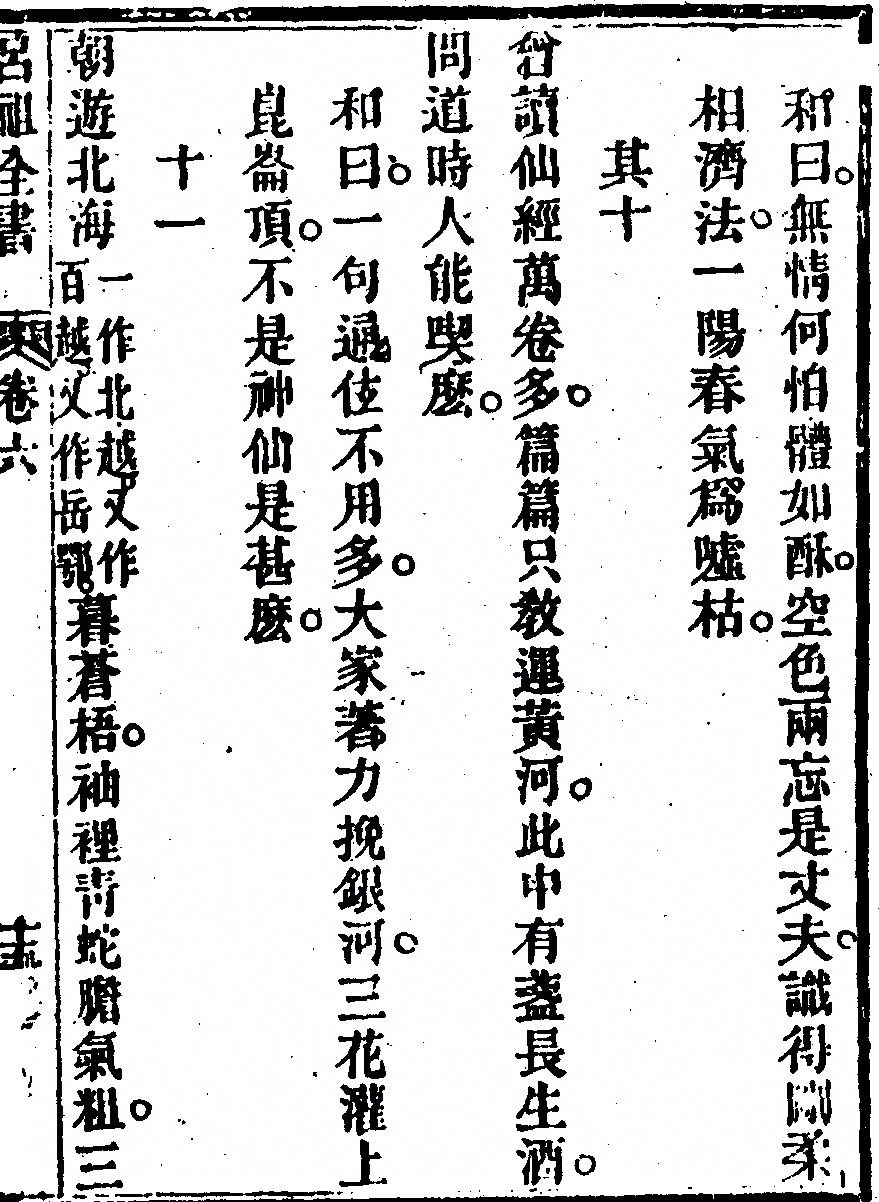 和曰無情何怕體如酥空色兩忘是丈夫識得剛柔
相濟法一陽春氣爲噓枯
其十
曾讀仙經萬卷多篇篇只教運黃河此中有盞長生酒
問道時人能喫麼
和曰一句通伎不用多大家著力挽銀河三花灌上
崑崙頂不是神仙是甚麼
十一
朝遊北海一作北越又作百越又作岳鄂暮蒼梧袖裡靑蛇膽氣粗三
呂祖全書 卷六